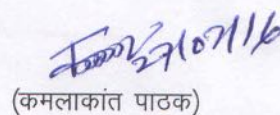 27/07/16
(कमलाकांत पाठक)